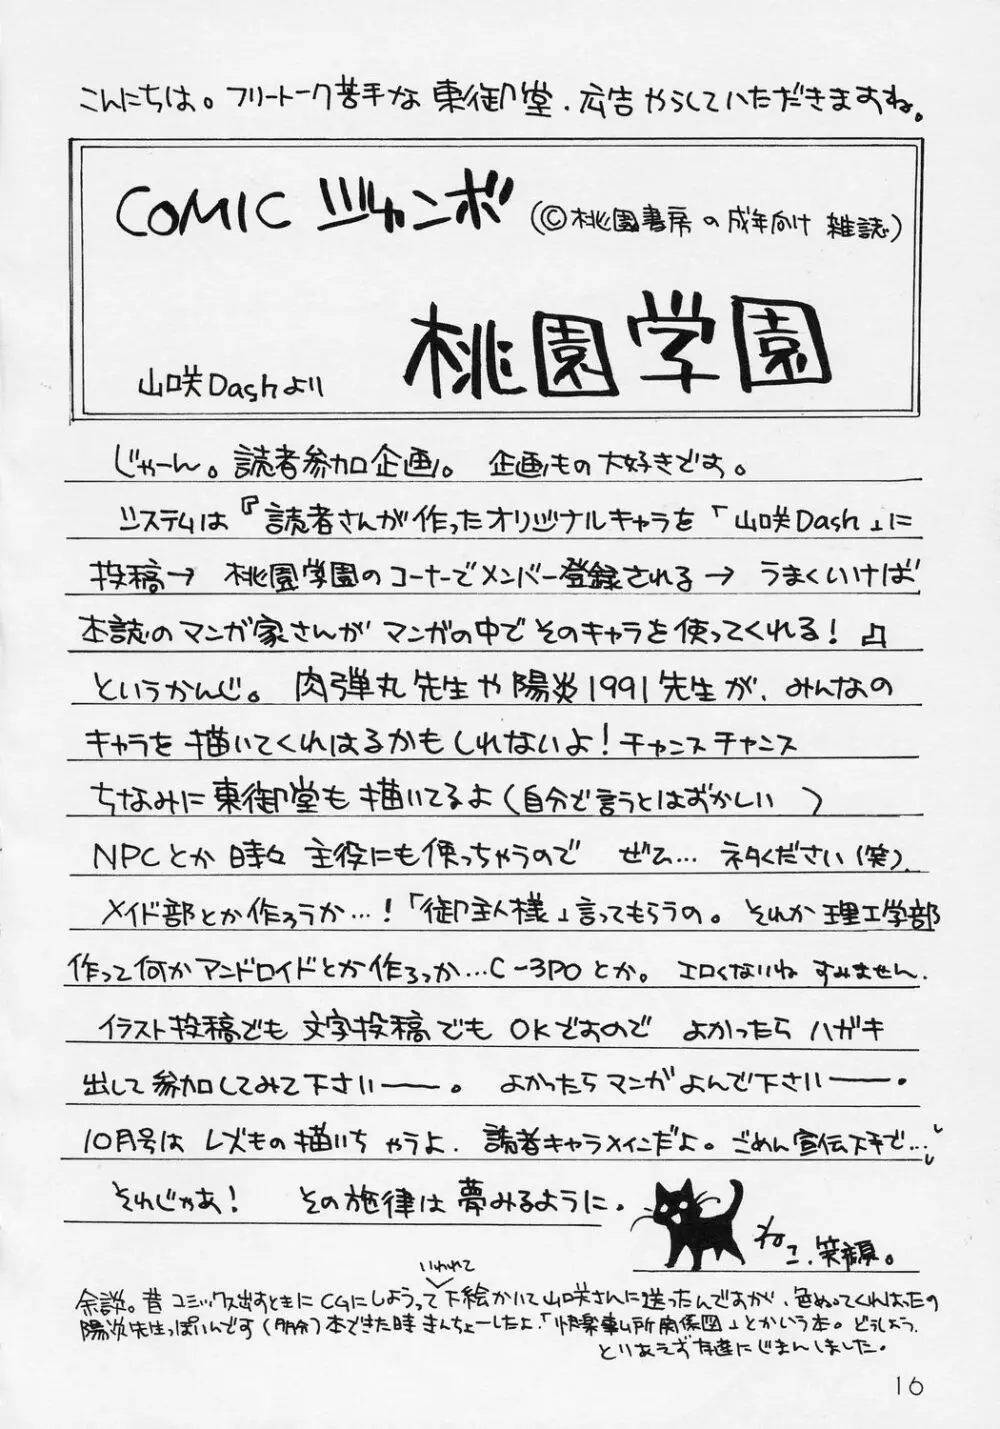 こんにちは。フリートーク苦手な東御堂、広告やらしていただきますね。
COMIC ジャンボ (©桃園書房の成年向け雑誌)
桃園学園
山咲Dashより
じゃーん。読者参加企画。企画もの大好きです。
システムは『読者さんが作ったオリジナルキャラを「山咲Dash」に
投稿→ 桃園学園のコーナーでメンバー登録される→ うまくいけば
本誌のマンガ家さんが マンガの中でそのキャラを使ってくれる！』
というかんじ。 肉弾丸先生や陽炎1991先生が、みんなの
キャラを描いてくれはるかもしれないよ！チャンスチャンス
ちなみに東御堂も描いてるよ(自分で言うとはずかしい )
NPCとか時々主役にも使っちゃうので ぜひ… ネタください(笑)
メイド部とか作ろうか…！「御主人様」言ってもらうの。それか理工学部
作って何かアンドロイドとか作ろっか…C-3POとか。エロくないね すみません.
イラスト投稿でも 文字投稿でも OKですので よかったら ハガキ
出して参加してみて下さいーー。 よかったらマンガよんで下さいーー.
10月号は レズもの描いちゃうよ. 読者キャラメインだよ。ごめん宣伝下手で…
それじゃあ！ その旋律は夢みるように.
ねこ.笑顔。
余談。昔 コミックス出すときに CGにしようっていわれて下絵かいて山咲さんに送ったんですが、色ぬってくれはったの
陽炎先生っぽいんです(多分)本できた時きんちょーしたよ、「快楽事ム所関係図」とかいう本。どうしよう.
とりあえず友達にじまんしました.
16